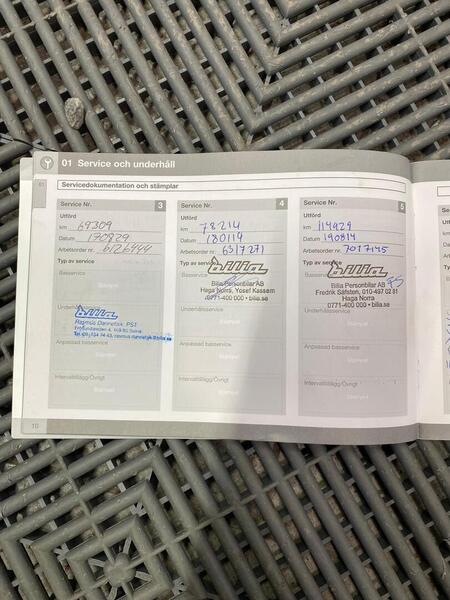 01 Service och underhåll
01
Servicedokumentation och stämplar
Service Nr. 3
Utförd
km 69309
Datum 170829
Arbetsorder nr. 6126444
Typ av service
Basservice
bilia
Rasmus Dannefisk, PS1
Tel
Anpassad basservice
Stämpel
Intervalltillägg/Övrigt
Stämpel
Service Nr. 4
Utförd
km 78214
Datum 180119
Arbetsorder nr. 6317271
Typ av service
Basservice
bilia
Bilia Personbilar AB
Haga Norra, Yosef Kassem
0771-400 000 • bilia.se
Underhållsservice
Stämpel
Anpassad basservice
Stämpel
Intervalltillägg/Övrigt
Stämpel
Service Nr. 5
Utförd
km 114929
Datum 190814
Arbetsorder nr. 7077175
Typ av service
bilia
Bilia Personbilar AB
Fredrik Säfsten, 010-497 02 81
Haga Norra
0771-400 000 • bilia.se
Underhållsservice
Stämpel
Anpassad basservice
Stämpel
Intervalltillägg/Övrigt
Stämpel
10